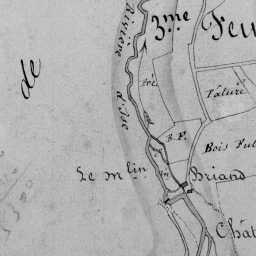 Rivière
d'Isc
3me Feu
de
Pré
Pature
B.F.
Bois Fut
Le mlin Briand
Chât